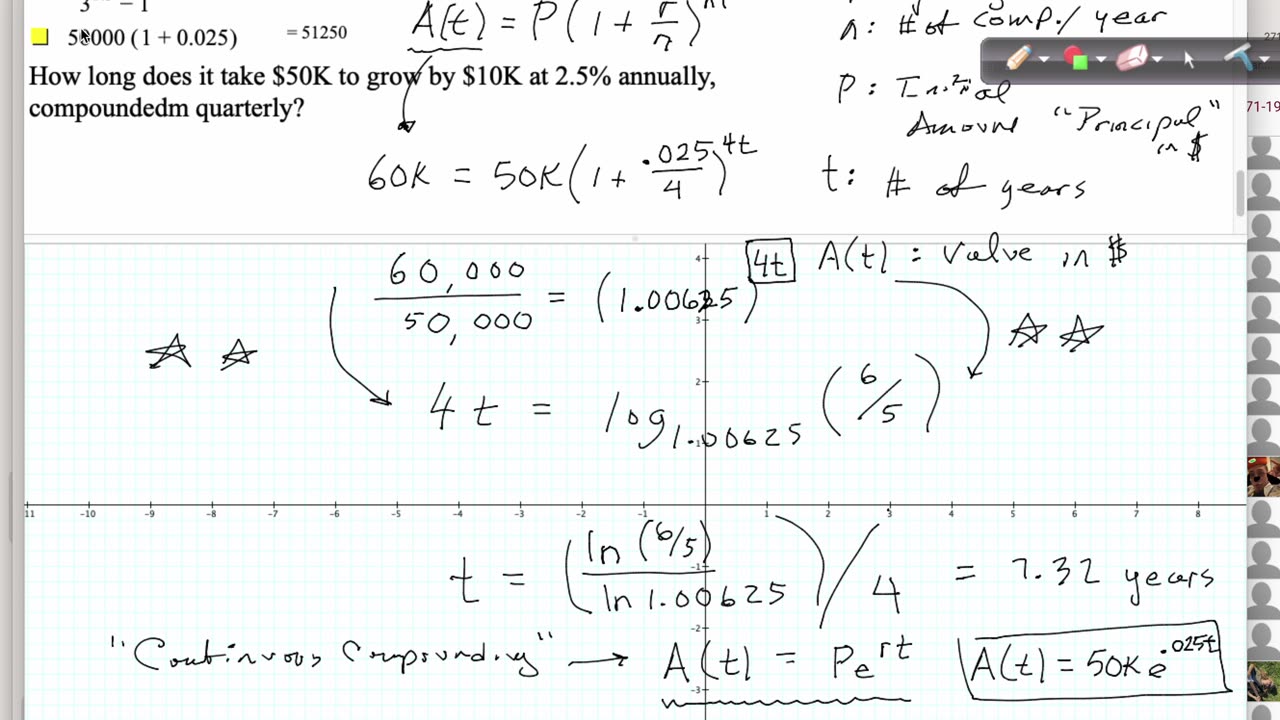 3 − 1
50000 (1 + 0.025) = 51250
A(t) = P(1 + r/n)^nt
n: # of comp./ year
How long does it take $50K to grow by $10K at 2.5% annually,
compoundedm quarterly?
P: Initial
Amount "Principal"
in $
71-19
60K = 50K(1 + .025/4)^4t
t: # of years
60,000/50,000 = (1.00625)^4t
A(t) : Value in $
4t = log_1.00625 (6/5)
4
3
2
-1
-11 -10 -9 -8 -7 -6 -5 -4 -3 -2 -1 1 2 3 4 5 6 7 8
t = (ln (6/5)/ln 1.00625)/4 = 7.32 years
-1
-2
-3
"Continuous Compounding" → A(t) = Pe^rt
A(t) = 50K e^.025t